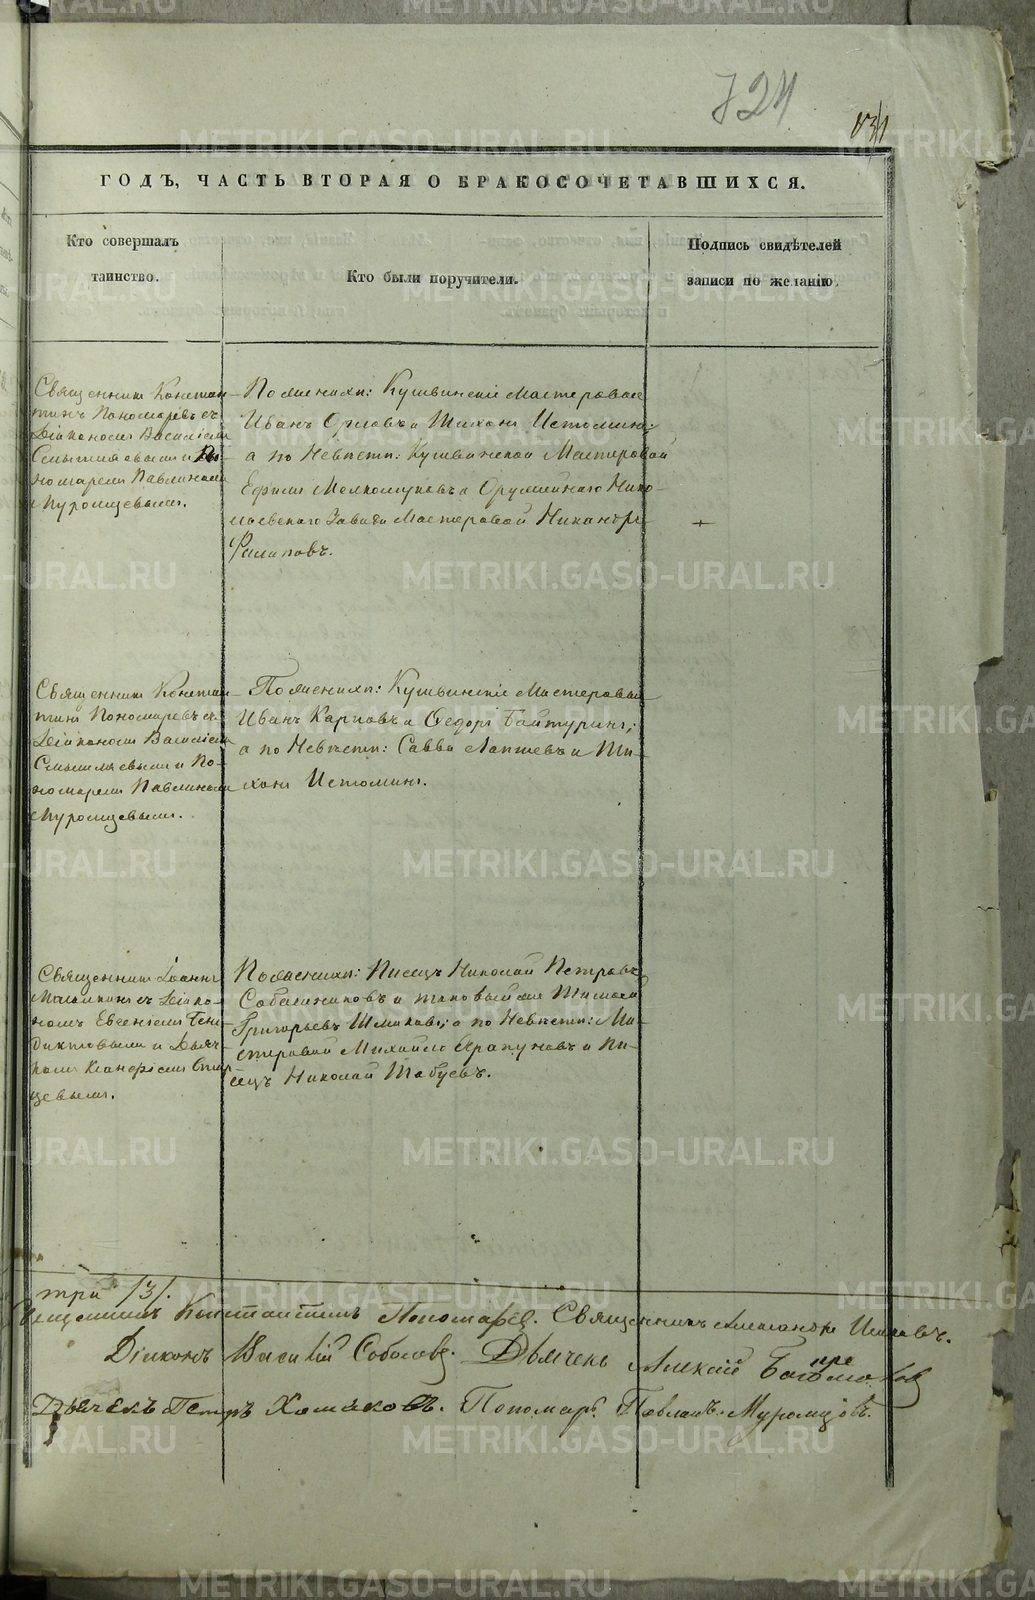 724
ГОДЪ, ЧАСТЬ ВТОРАЯ О БРАКОСОЧЕТАВШИХСЯ.
Кто совершалъ
таинство.
Кто были поручители.
Подпись свидѣтелей
записи по желанію.
Священникъ Констан-
тинъ Пономаревъ съ
Діакономъ Василіемъ
Смышляевымъ и По-
номаремъ Павлиномъ
Муромцевымъ.
По женихѣ: Кушвинскіе Мастеровые
Иванъ Орловъ и Тихонъ Истоминъ:
а по Невѣстѣ: Кушвинской Мастеровой
Ефимъ и Оружейнаго Нико-
лаевскаго Завода Мастеровой Никандръ
Филиповъ.
Священникъ Констан-
тинъ Пономаревъ съ
Діакономъ Василіемъ
Смышляевымъ и По-
номаремъ Павлиномъ
Муромцевымъ.
По женихѣ: Кушвинскіе Мастеровые
Иванъ Карповъ и Ѳедоръ Байтуринъ;
а по Невѣстѣ: Савва Лаптевъ и Ти-
хонъ Истоминъ.
Священникъ Іоаннъ
съ Діако-
номъ Евгеніемъ Бене-
диктовымъ и Дьяч-
комъ
цевымъ.
По женихѣ: Писецъ Николай Петровъ
и таковый же Тимофей
Григорьевъ Шлыковъ; а по Невѣстѣ: Ма-
стеровой Михайло и Пи-
сецъ Николай Табуевъ.
три /3/.
Священникъ Константинъ Пономаревъ. Священникъ Александръ
Діаконъ Василій Соболевъ. Дьячекъ Алексій
Дьячекъ Петръ Хомяковъ. Пономарь Павлинъ Муромцовъ.
METRIKI.GASO-URAL.RU